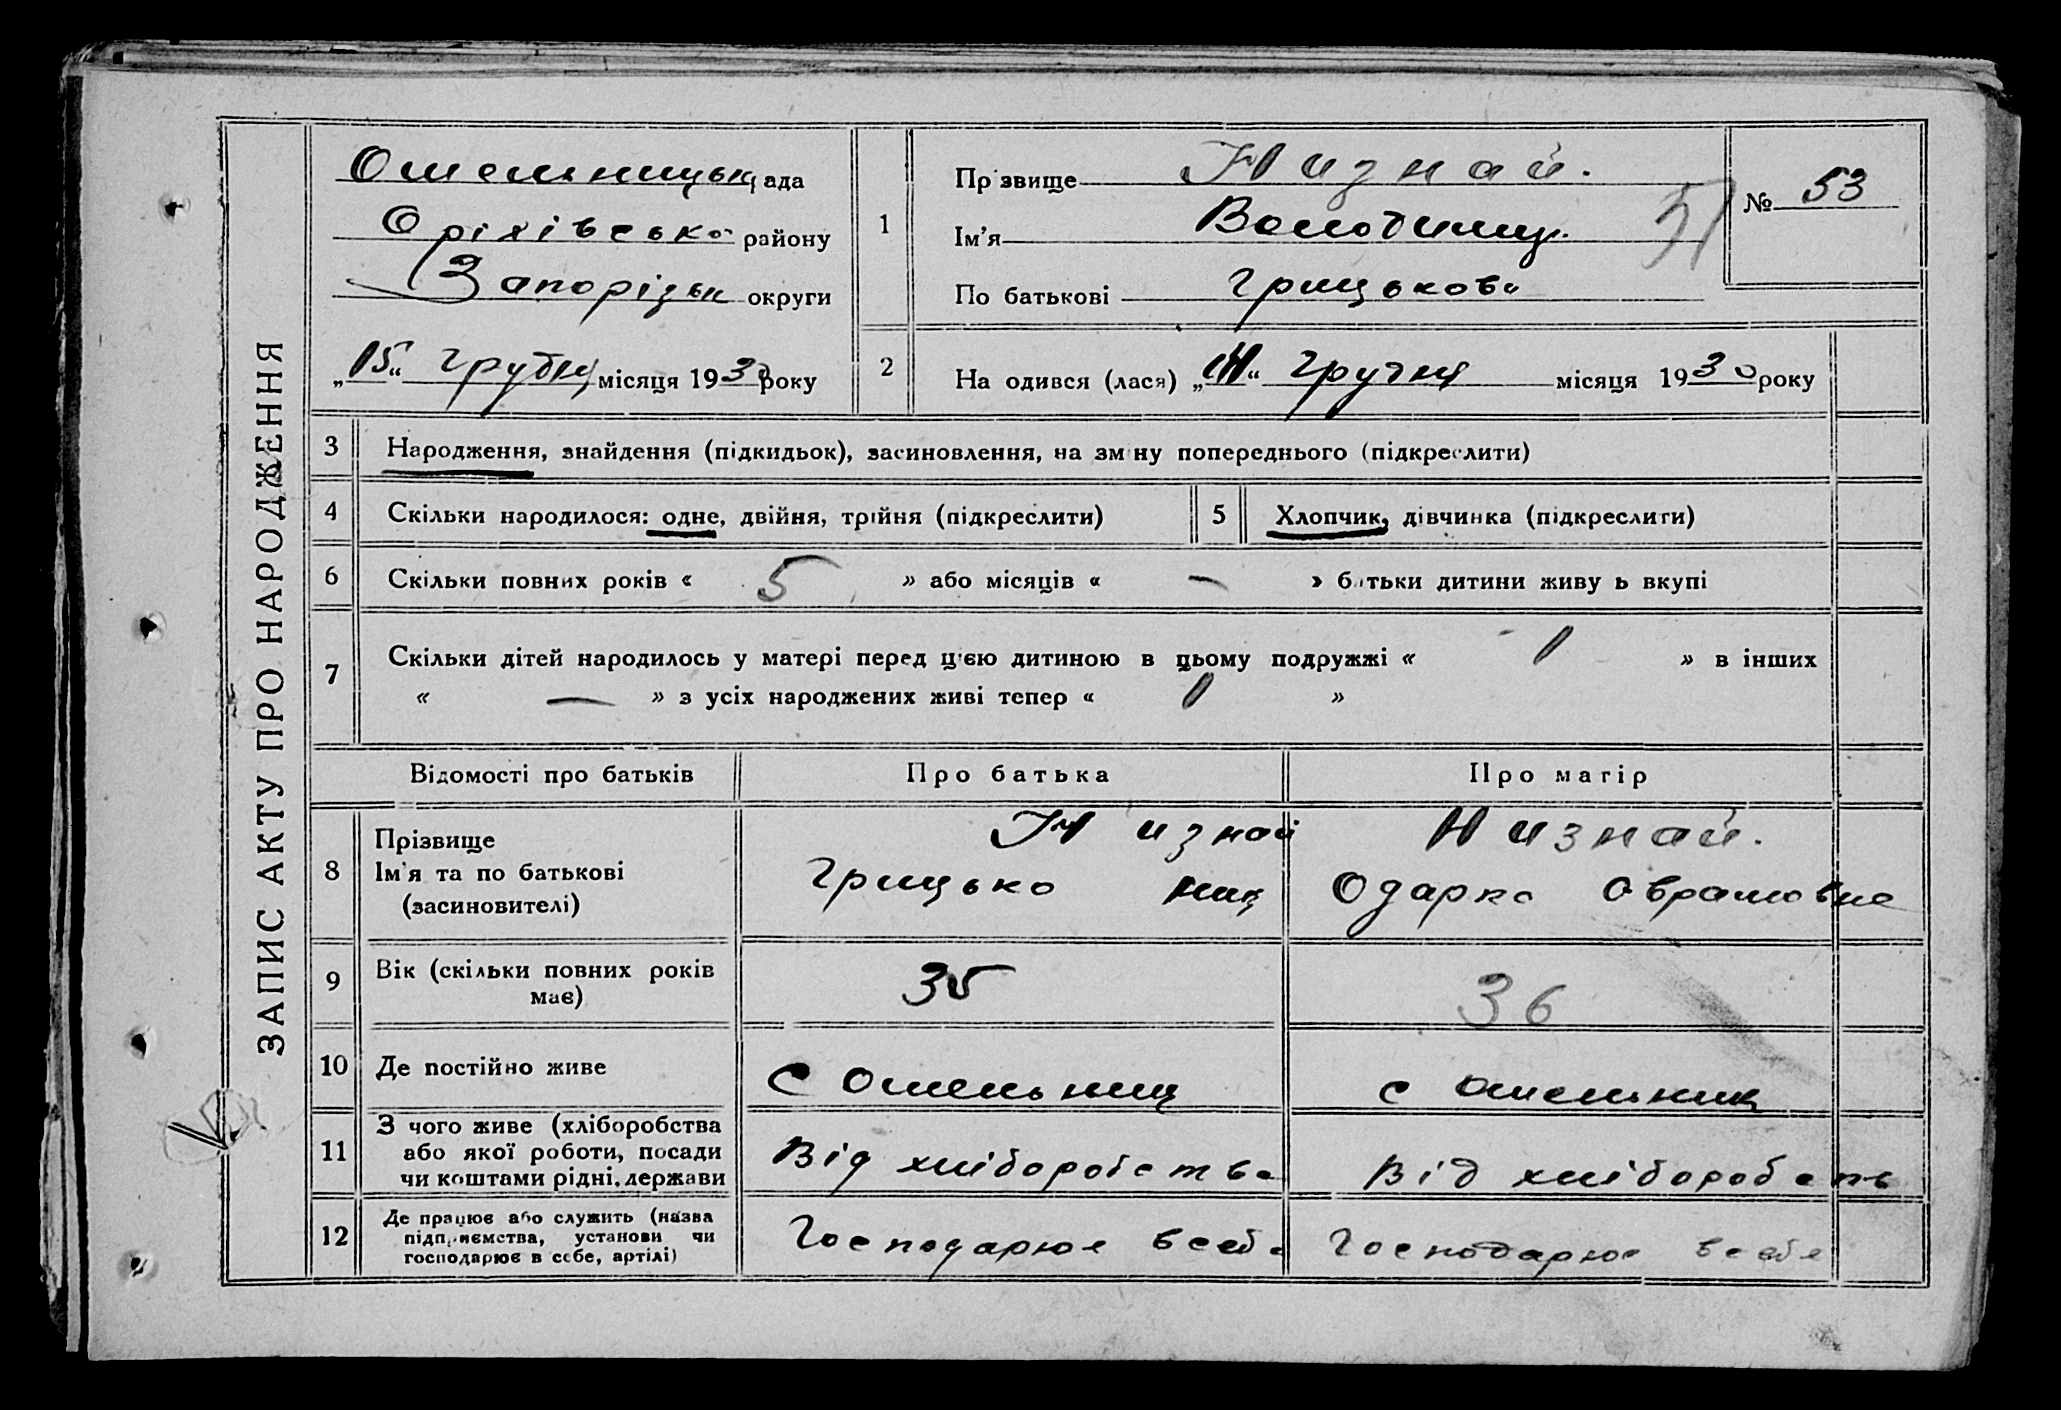 ЗАПИС АКТУ ПРО НАРОДЖЕННЯ
Омельницьк ада
Оріхівсько району
Запорізьк округи
„15“ Грудня місяця 1930 року
1
Прізвище Низнай.
Ім'я Володимир.
По батькові Грицькова
№ 53
51
2 На одився (лася) „14“ Грудня місяця 1930 року
3 Народження, знайдення (підкидьок), засиновлення, на зміну попереднього (підкреслити)
4 Скільки народилося: одне, двійня, трійня (підкреслити) 5 Хлопчик, дівчинка (підкреслити)
6 Скільки повних років « 5 » або місяців « — » батьки дитини живу ь вкупі
7 Скільки дітей народилось у матері перед цією дитиною в цьому подружжі « 1 » в інших
« — » з усіх народжених живі тепер « 1 »
Відомості про батьків Про батька Про матір
8 Прізвище Низнай Низнай.
Ім'я та по батькові Грицько Одарка Оврамовна
(засиновителі)
9 Вік (скільки повних років має) 35 36
10 Де постійно живе с Омельник с Омельник
11 З чого живе (хліборобства Від хліборобства Від хліборобств
або якої роботи, посади
чи коштами рідні, держави
12 Де працює або служить (назва Господарює в себе Господарює в себе
підприємства, установи чи
господарює в себе, артілі)